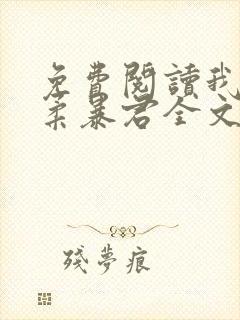 免費閱讀我
柔暴君全文
殘夢痕